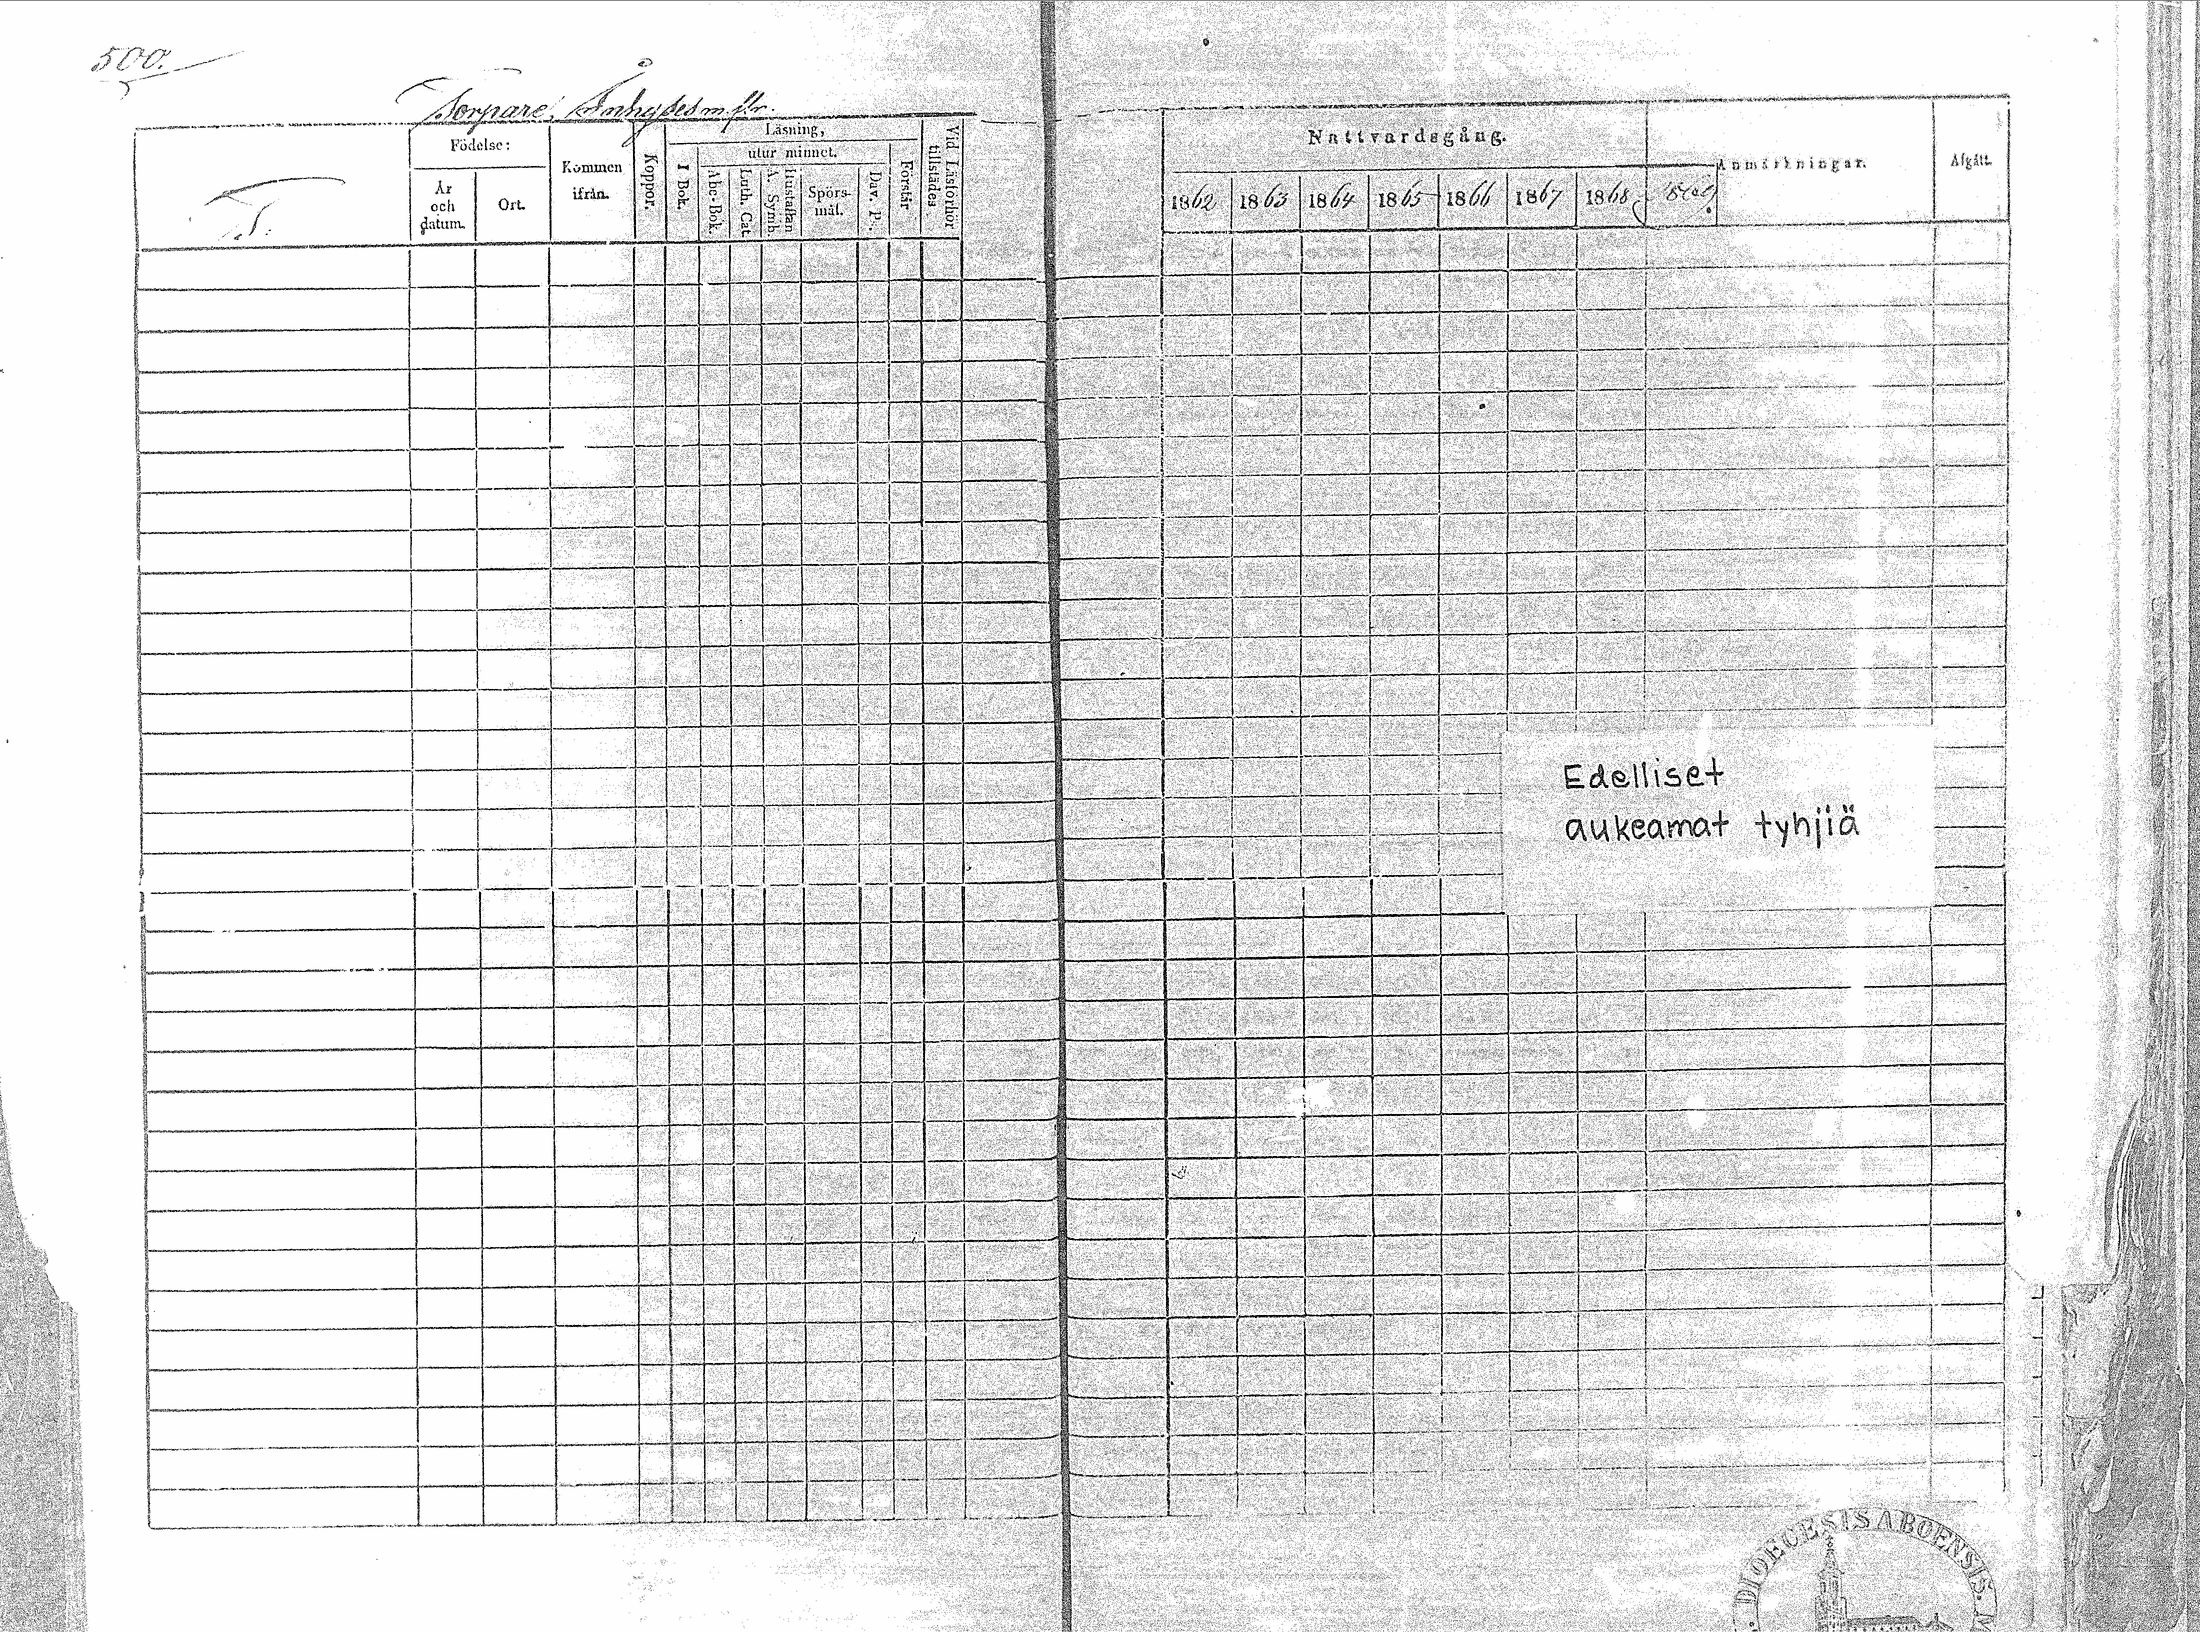 500.
Torpare, Inhyses m. fl.
Födelse:
År och datum.
Ort.
Kommen ifrån.
Koppor.
Läsning,
I Bok.
utur minnet.
Abc-Bok.
Luth. Cat.
Hustaflan A. Symb.
Spörs-mål.
Dav. P.
Förstår
Vid Läsförhör tillstädes
Nattvardsgång.
1862 1863 1864 1865 1866 1867 1868
Anmärkningar.
Afgått.
Edelliset
aukeamat tyhjiä
DIOECESIS ABOENSIS.